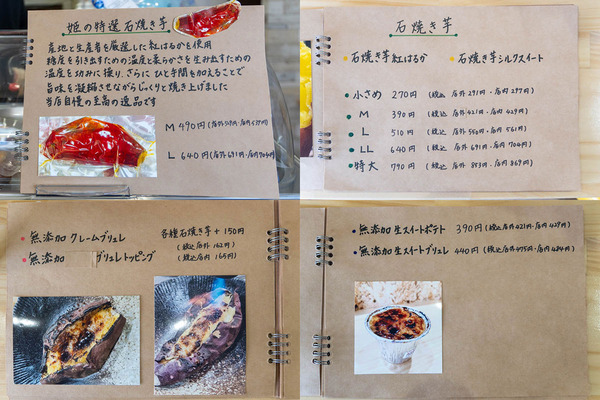 姫の特選石焼き芋
産地と生産者を厳選した紅はるかを使用
糖度を引き出すための温度と柔らかさを生み出すための
温度を巧みに操り、さらにひと手間を加えることで
旨味を凝縮させながらじっくりと焼き上げました
当店自慢の至高の逸品です
M 490円(店外529円・店内539円)
L 640円(店外691円・店内704円)
石焼き芋
石焼き芋紅はるか 石焼き芋シルクスイート
小さめ 270円 (税込 店外291円・店内297円)
M 390円 (税込 店外421円・店内429円)
L 510円 (税込 店外550円・店内561円)
LL 640円 (税込 店外691円・店内704円)
特大 790円 (税込 店外853円・店内869円)
無添加 クレームブリュレ 各種石焼き芋+150円
(税込店外162円)
無添加 ブリュレトッピング (税込店内165円)
無添加 生スイートポテト 390円(税込店外421円・店内429円)
無添加 生スイートブリュレ 440円(税込店外475円・店内484円)